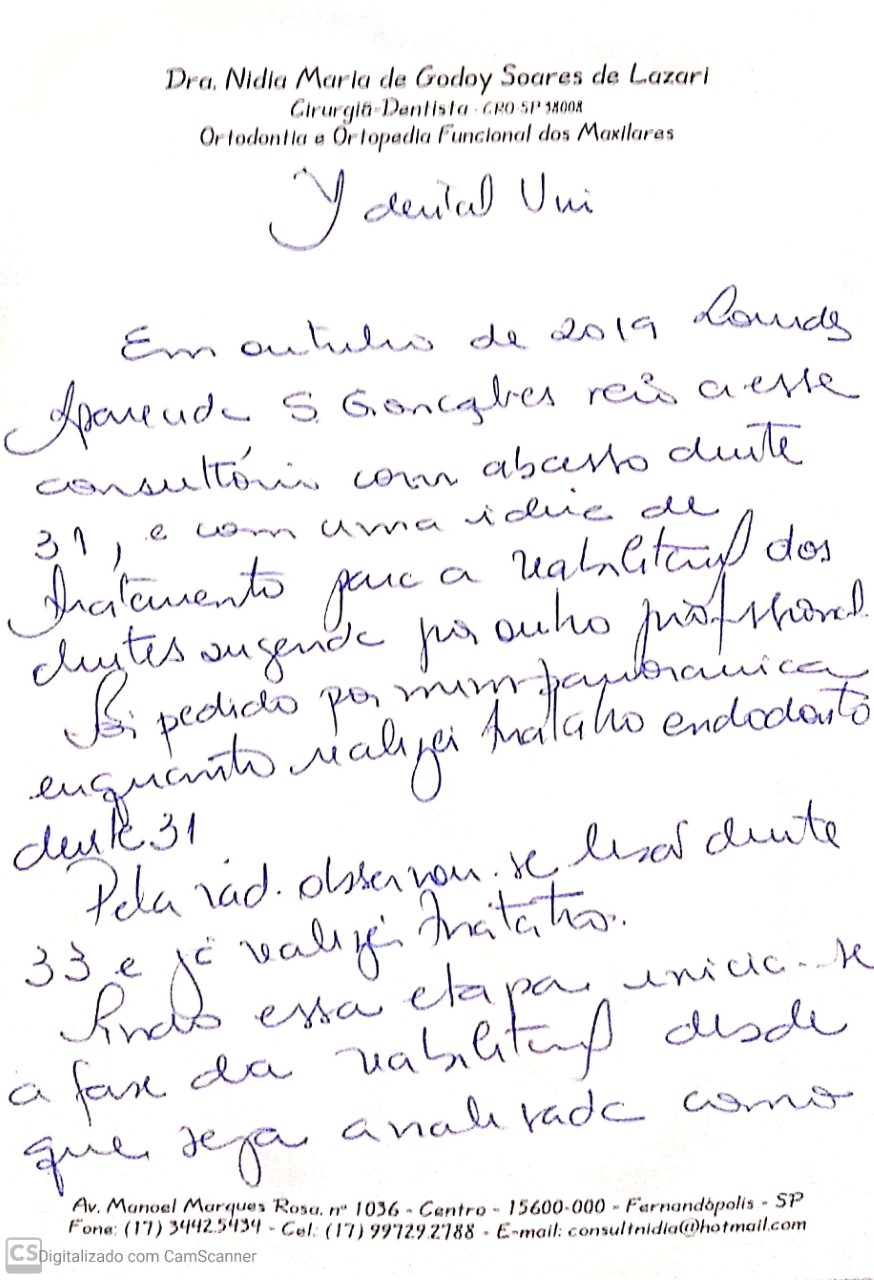 Dra. Nidia Maria de Godoy Soares de Lazari
Cirurgiã-Dentista - CRO-SP 38008
Ortodontia e Ortopedia Funcional dos Maxilares
dental Uni
Em outubro de 2019 Lourdes
Aparecida S. Gonçalves veio a esse
consultório com abcesso dente
31, e com uma ideia de
tratamento para a reabilitação dos
dentes sugerida por outro profissional.
Foi pedido por mim panoramica
enquanto realizei tratatro endodonto
dente 31
Pela rad. observou-se lesão dente
33 e já realizei tratatro.
Findo essa etapa inicia-se
a fase da reabilitação desde
que seja analizada como
Av. Manoel Marques Rosa, nº 1036 - Centro - 15600-000 - Fernandópolis - SP
Fone: (17) 3442.5434 - Cel: (17) 99729.2788 - E-mail: consultnidia@hotmail.com
CS Digitalizado com CamScanner